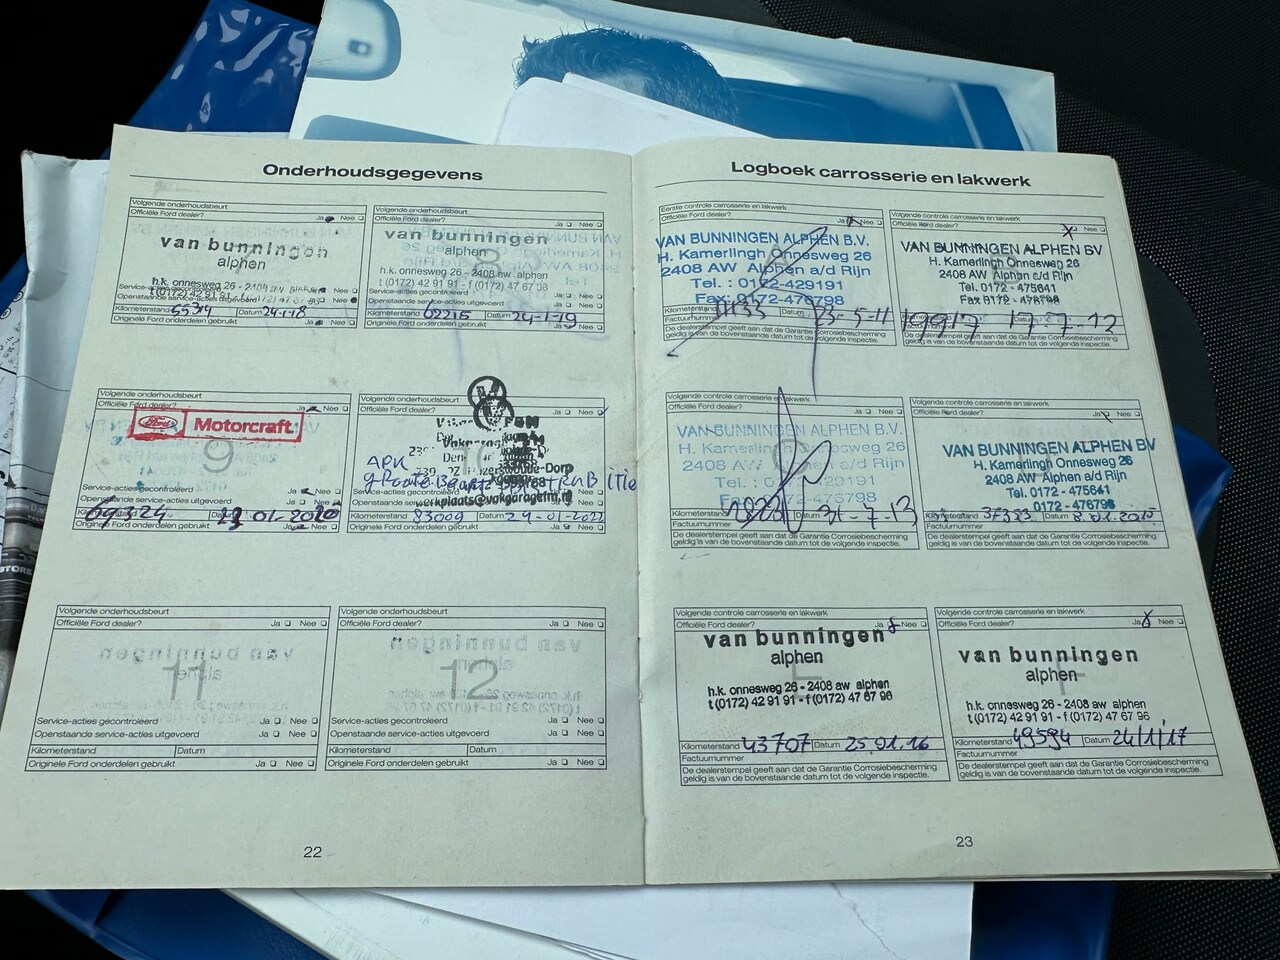 Onderhoudsgegevens
Volgende onderhoudsbeurt
Officiële Ford dealer? Ja Nee
van bunningen
alphen
h.k. onnesweg 26 - 2408 aw alphen
t (0172) 42 91 91
Openstaande service-acties uitgevoerd
Kilometerstand 55314 Datum 24-1-18
Originele Ford onderdelen gebruikt Ja Nee
Volgende onderhoudsbeurt
Officiële Ford dealer? Ja Nee
van bunningen
alphen
h.k. onnesweg 26 - 2408 aw alphen
t (0172) 42 91 91 - f (0172) 47 67 98
Openstaande service-acties uitgevoerd
Kilometerstand 62215 Datum 24-1-19
Originele Ford onderdelen gebruikt Ja Nee
Volgende onderhoudsbeurt
Officiële Ford dealer? Ja Nee
Ford Motorcraft
9
Service-acties gecontroleerd Ja Nee
Openstaande service-acties uitgevoerd Ja Nee
Kilometerstand 69324 Datum 01-2020
Originele Ford onderdelen gebruikt Ja Nee
Volgende onderhoudsbeurt
Officiële Ford dealer? Ja Nee
APK
werkplaats@vakgaragefm.nl
Kilometerstand 83009 Datum 24-01-2022
Originele Ford onderdelen gebruikt Ja Nee
Volgende onderhoudsbeurt
Officiële Ford dealer? Ja Nee
11
Service-acties gecontroleerd Ja Nee
Openstaande service-acties uitgevoerd Ja Nee
Kilometerstand Datum
Originele Ford onderdelen gebruikt Ja Nee
Volgende onderhoudsbeurt
Officiële Ford dealer? Ja Nee
12
Service-acties gecontroleerd Ja Nee
Openstaande service-acties uitgevoerd Ja Nee
Kilometerstand Datum
Originele Ford onderdelen gebruikt Ja Nee
22
Logboek carrosserie en lakwerk
Eerste controle carrosserie en lakwerk
Officiële Ford dealer? Ja Nee
VAN BUNNINGEN ALPHEN B.V.
H. Kamerlingh Onnesweg 26
2408 AW Alphen a/d Rijn
Tel. : 0172-429191
Fax: 0172-476798
Kilometerstand 11133 Datum 23-5-11
Factuurnummer
De dealerstempel geeft aan dat de Garantie Corrosiebescherming
geldig is van de bovenstaande datum tot de volgende inspectie.
Volgende controle carrosserie en lakwerk
Officiële Ford dealer? Nee
VAN BUNNINGEN ALPHEN BV
H. Kamerlingh Onnesweg 26
2408 AW Alphen a/d Rijn
Tel. 0172 - 475641
Fax 0172 - 476798
19917 17-7-12
De dealerstempel geeft aan dat de Garantie Corrosiebescherming
geldig is van de bovenstaande datum tot de volgende inspectie.
Volgende controle carrosserie en lakwerk
Officiële Ford dealer? Ja Nee
VAN BUNNINGEN ALPHEN B.V.
H. Kamerlingh Onnesweg 26
2408 AW Alphen a/d Rijn
Kilometerstand Datum 31-7-13
Factuurnummer
De dealerstempel geeft aan dat de Garantie Corrosiebescherming
geldig is van de bovenstaande datum tot de volgende inspectie.
Volgende controle carrosserie en lakwerk
Officiële Ford dealer? Ja Nee
VAN BUNNINGEN ALPHEN BV
H. Kamerlingh Onnesweg 26
2408 AW Alphen a/d Rijn
Tel. 0172 - 475641
0172 - 476798
Kilometerstand 37353 Datum
Factuurnummer
De dealerstempel geeft aan dat de Garantie Corrosiebescherming
geldig is van de bovenstaande datum tot de volgende inspectie.
Volgende controle carrosserie en lakwerk
Officiële Ford dealer? Ja Nee
van bunningen
alphen
h.k. onnesweg 26 - 2408 aw alphen
t (0172) 42 91 91 - f (0172) 47 67 98
Kilometerstand 43707 Datum 25.01.16
Factuurnummer
De dealerstempel geeft aan dat de Garantie Corrosiebescherming
geldig is van de bovenstaande datum tot de volgende inspectie.
Volgende controle carrosserie en lakwerk
Officiële Ford dealer? Ja Nee
van bunningen
alphen
h.k. onnesweg 26 - 2408 aw alphen
t (0172) 42 91 91 - f (0172) 47 67 98
Kilometerstand 49594 Datum 24/1/17
Factuurnummer
De dealerstempel geeft aan dat de Garantie Corrosiebescherming
geldig is van de bovenstaande datum tot de volgende inspectie.
23